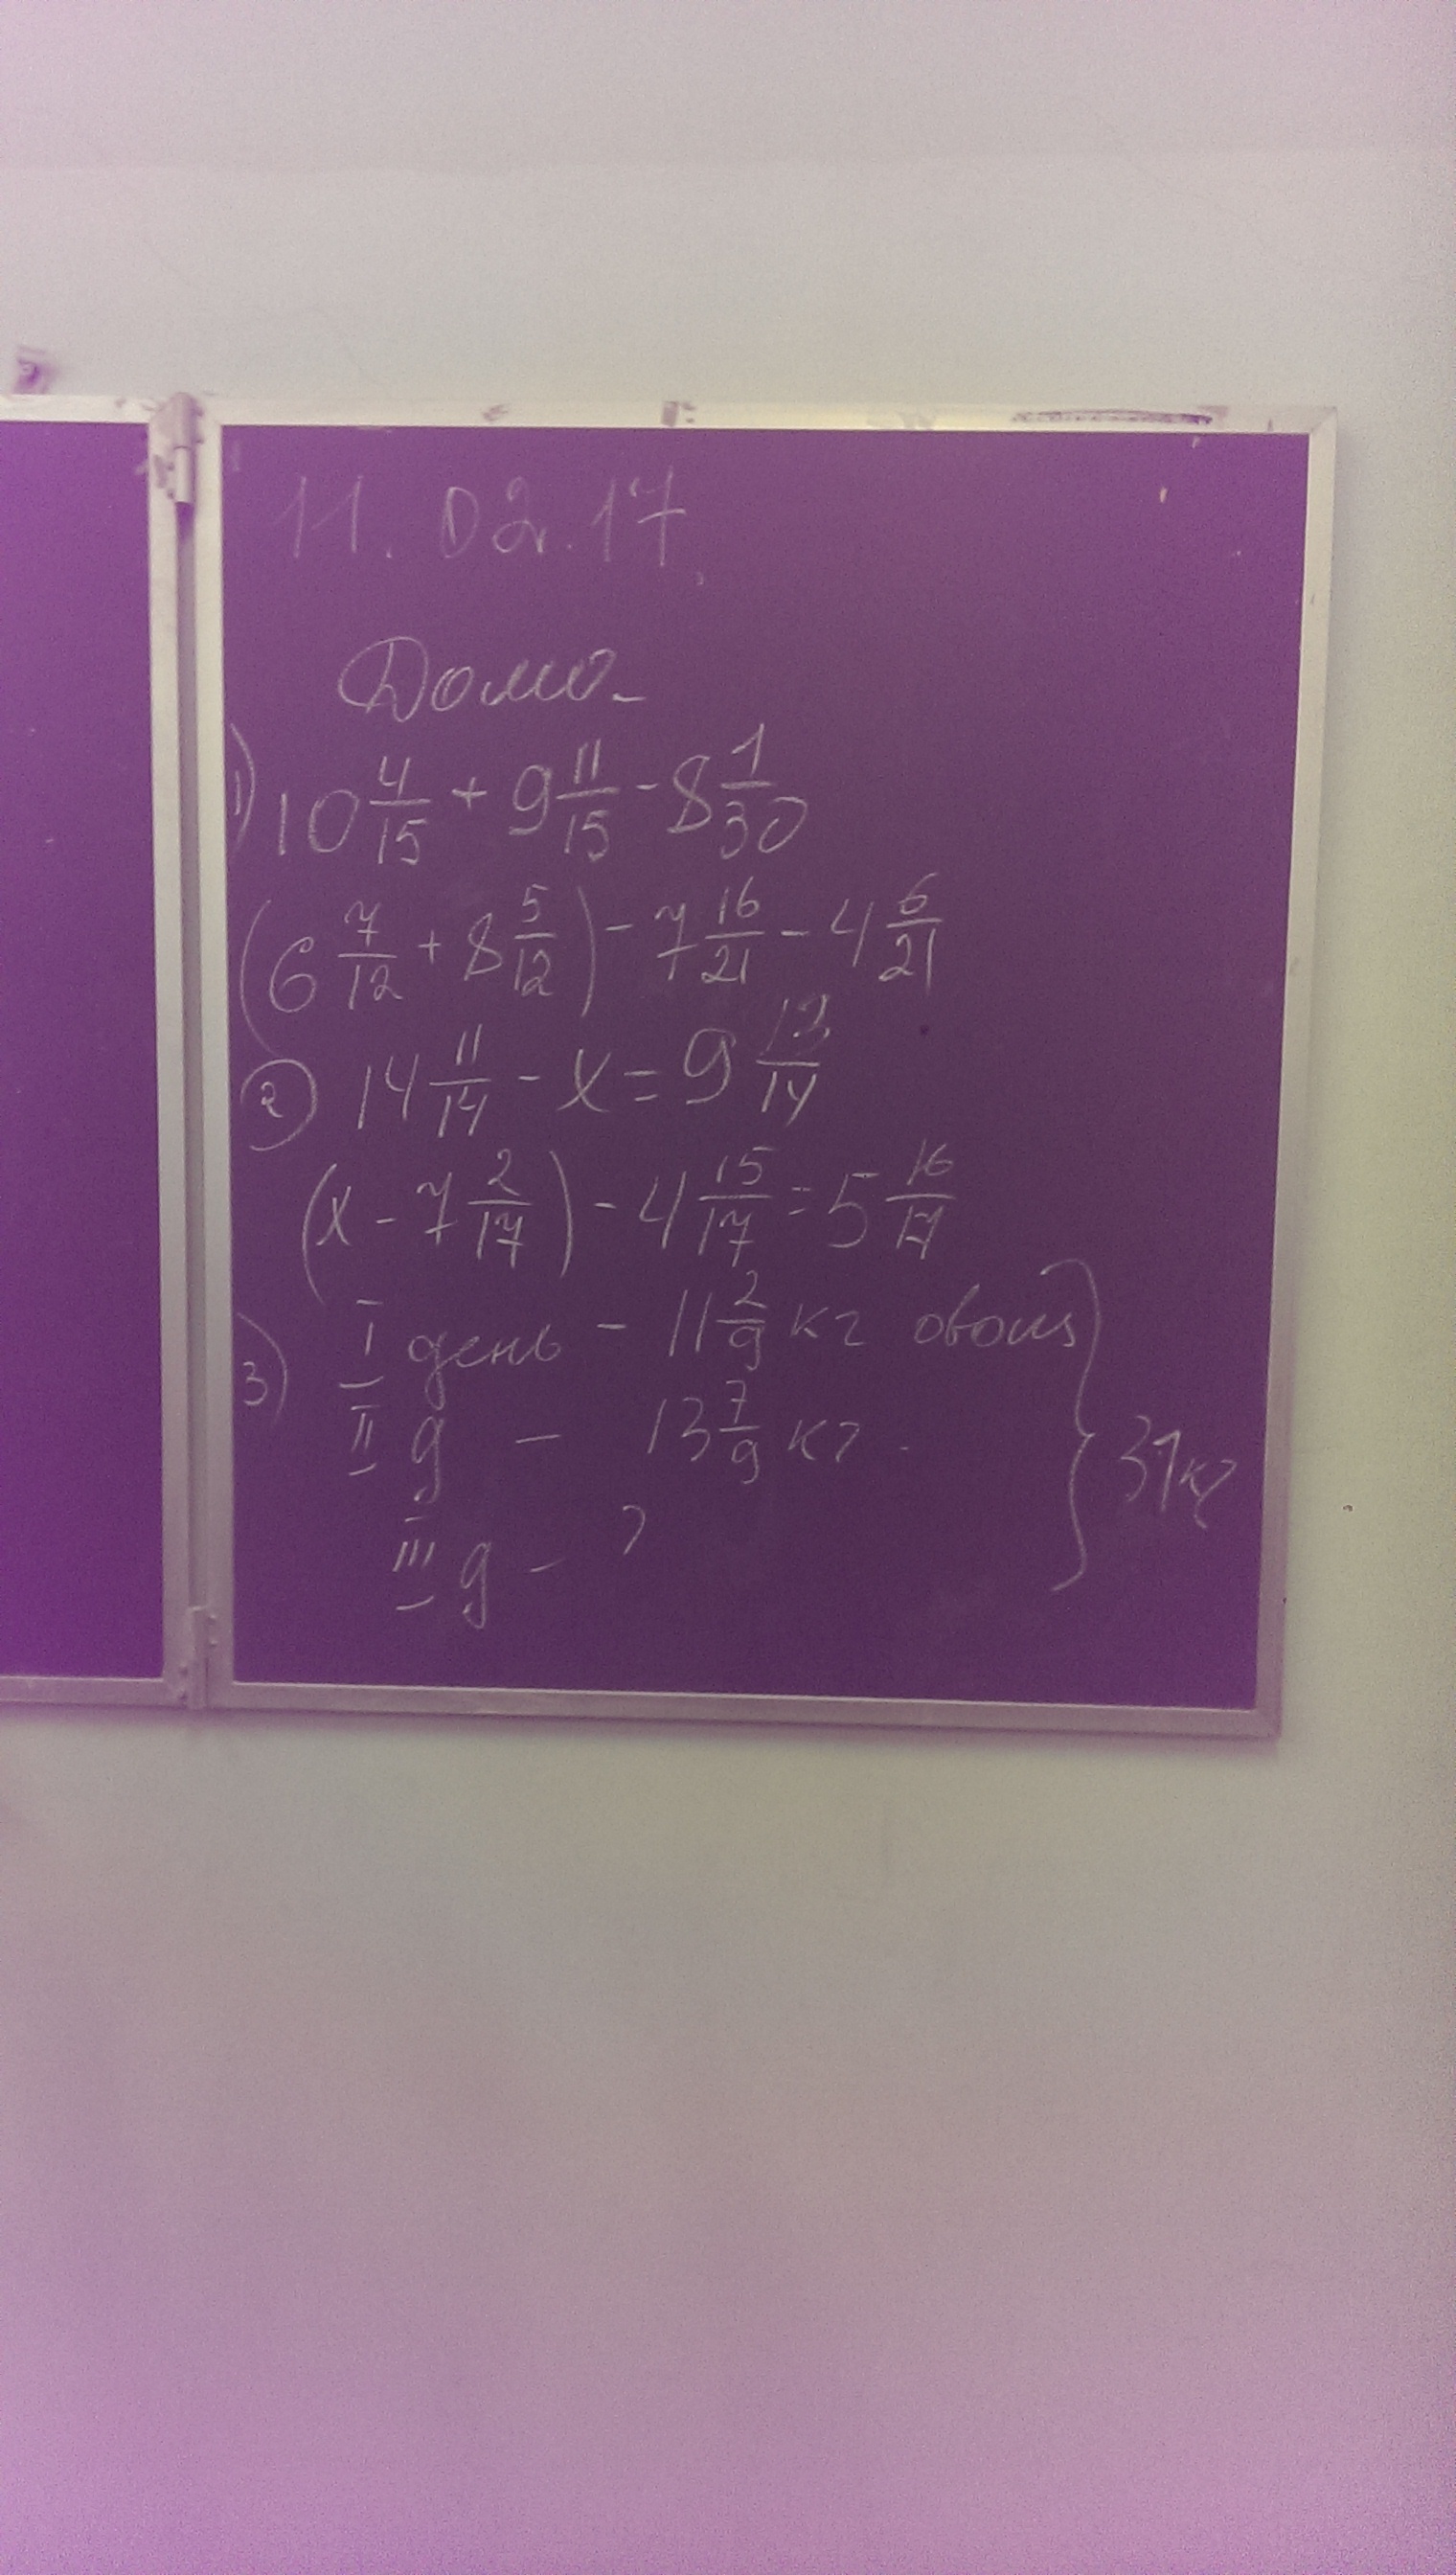 11.02.17.
Домо-
1) 10 4/15 + 9 11/15 - 8 1/30
(6 7/12 + 8 5/12) - 7 16/21 - 4 6/21
2) 14 11/14 - x = 9 13/14
(x - 7 2/17) - 4 15/17 = 5 16/17
3) I день - 11 2/9 кг овощ
II д - 13 7/9 кг.
III д - ?
31кг